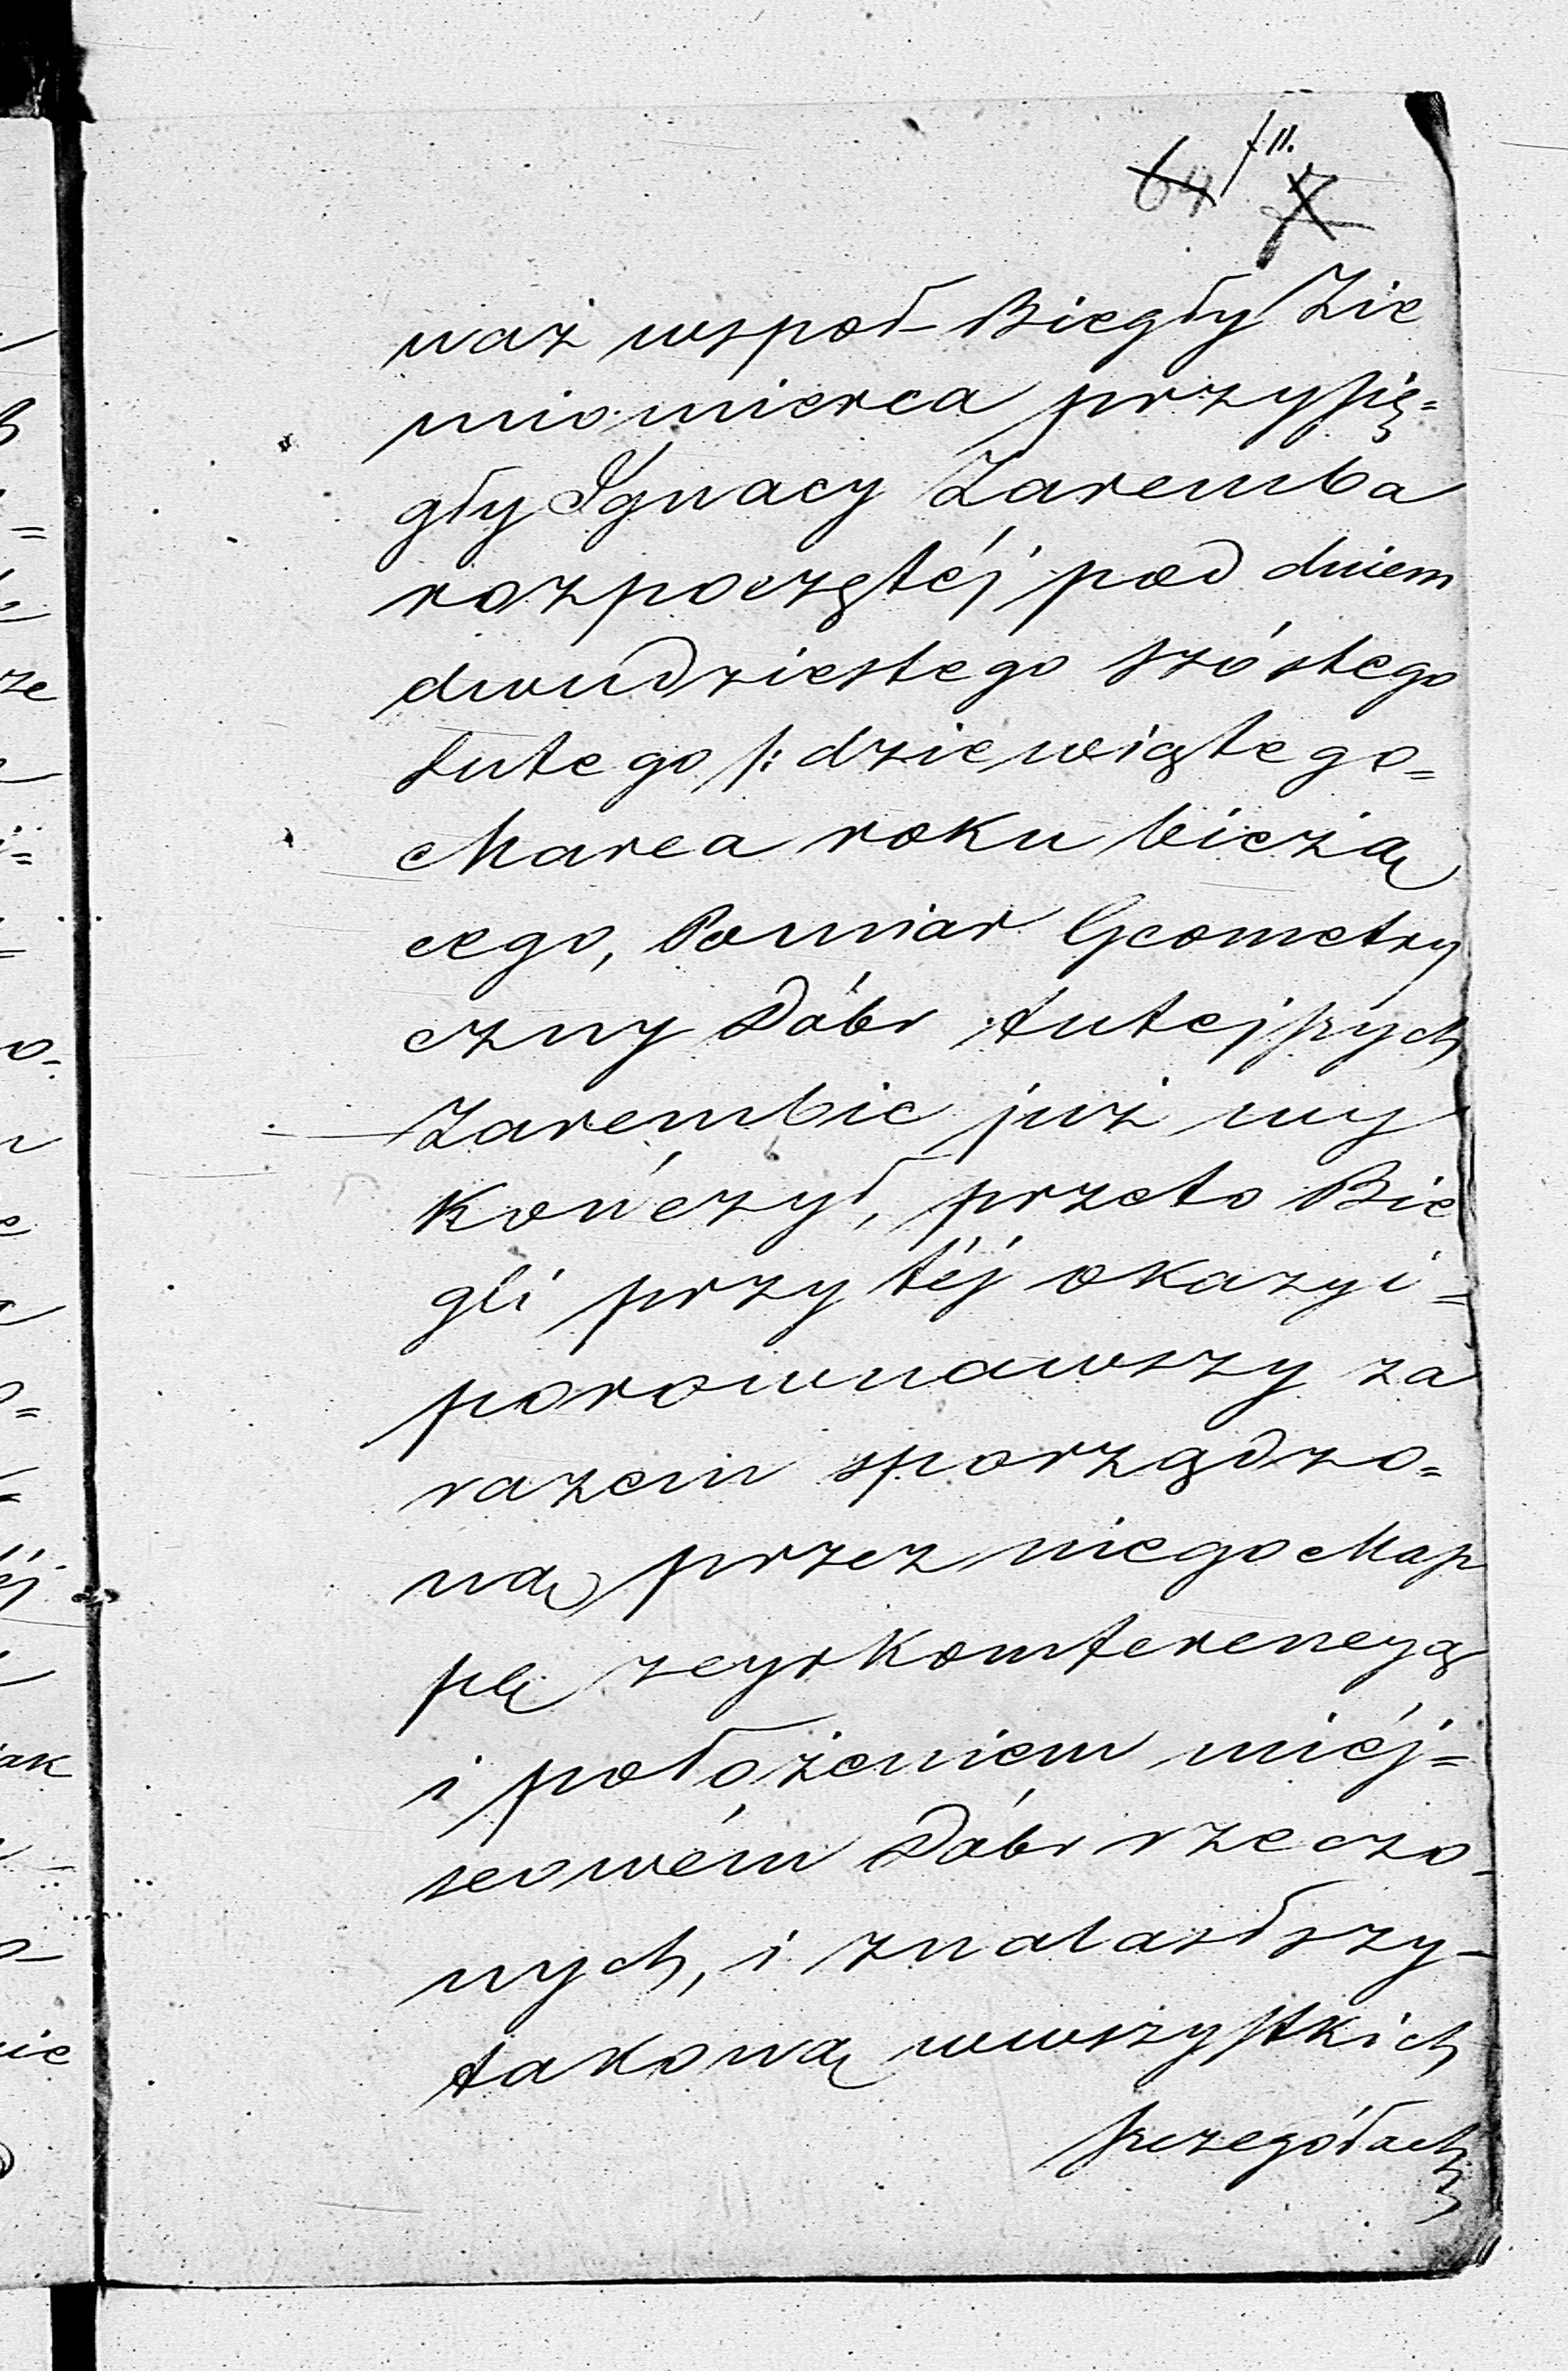 64 f. 11.
7
waż wspoł Biegły Zie
miomierca przysię=
gły Ignacy Zaremba
rozpoczętéj pod dniem
dwudziestego szóstego
Lutego /: dziewiątego=
Marca roku bieżą
cego, Pomiar Geometry
czny Dóbr tutejszych
Zarembic już wy
kończył, przeto Bie
gli przy téj okazyi=
porownawszy za
razem sporządzo=
ną przez niego Map
pę zcyrkomferencyą
i położeniem miéj=
scowém Dóbr rzeczo-
nych, i znalasłszy-
takową wwszystkich
szczegółach